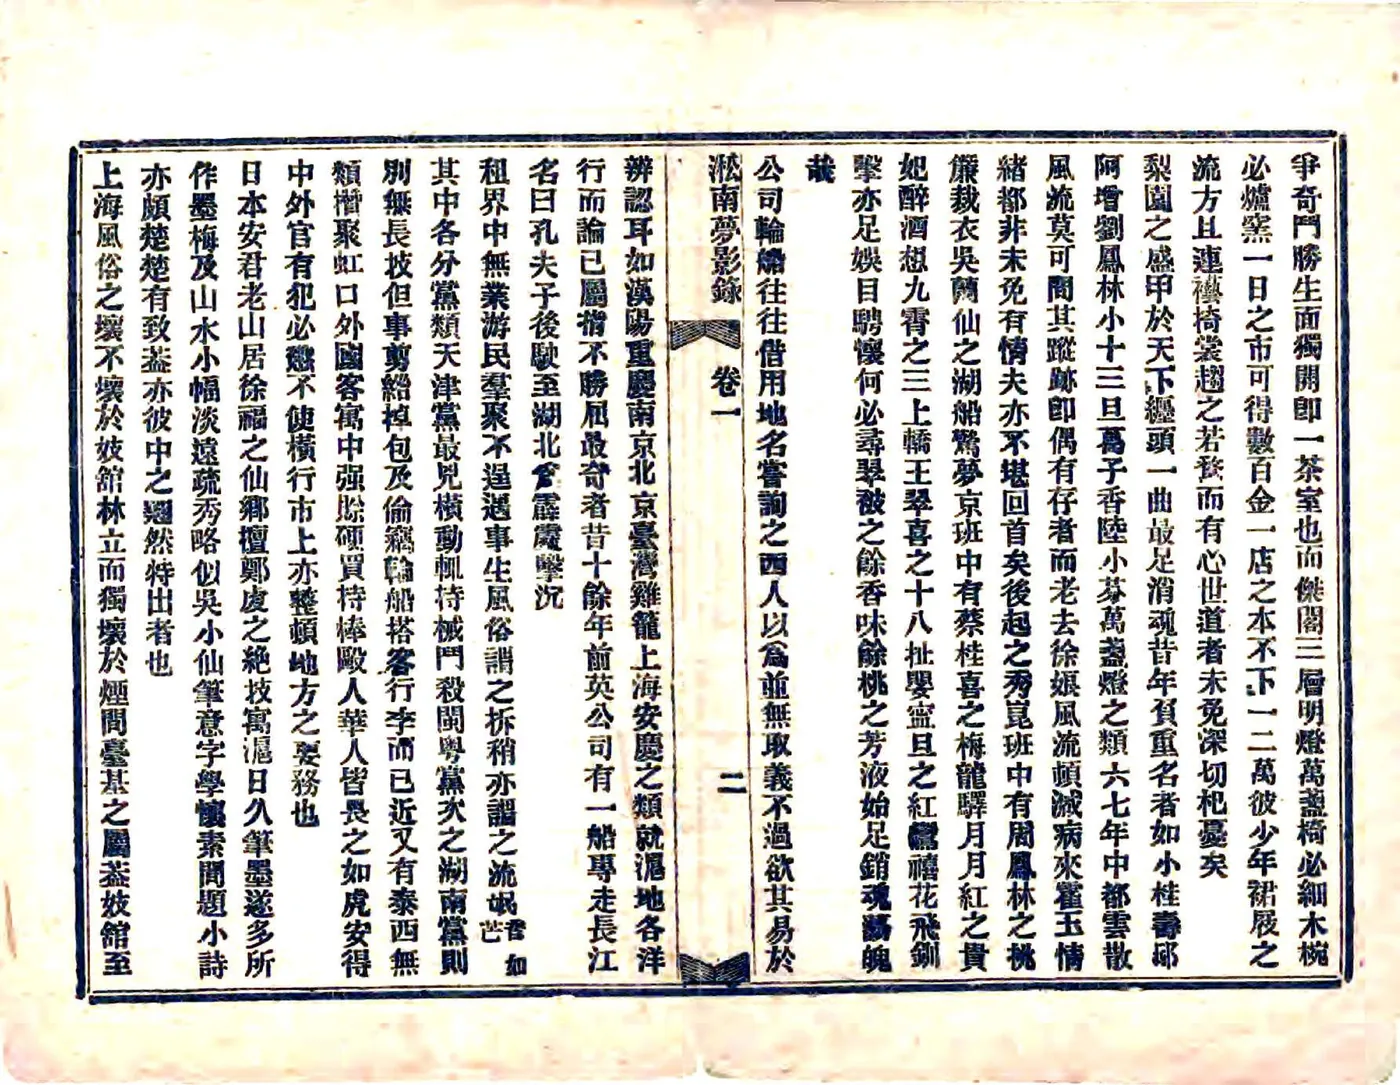 爭奇鬥勝生面獨開卽一茶室也而傑閣三層明燈萬盞椅必細木椀
必爐窯一日之市可得數百金一店之本不下一二萬彼少年裙屐之
流方且連襼椅裳趨之若鶩而有心世道者未免深切杞憂矣
梨園之盛甲於天下纏頭一曲最足消魂昔年負重名者如小桂壽邱
阿增劉鳳林小十三旦萬子香陸小芬萬盞燈之類六七年中都雲散
風流莫可問其蹤跡卽偶有存者而老去徐娘風流頓減病來霍玉情
緒都非未免有情夫亦不堪回首矣後起之秀崑班中有周鳳林之挑
簾裁衣吳蘭仙之湖船驚夢京班中有蔡桂喜之梅龍驛月月紅之貴
妃醉酒想九霄之三上轎王翠喜之十八扯嬰寧旦之紅鸞禧花飛釧
擊亦足娛目騁懷何必尋翠被之餘香味餘桃之芳液始足銷魂蕩魄
哉
公司輪船往往借用地名嘗詢之西人以爲並無取義不過欲其易於
淞南夢影錄 卷一 二
辨認耳如漢陽重慶南京北京臺灣雞籠上海安慶之類就滬地各洋
行而論已屬指不勝屈最奇者昔十餘年前英公司有一船專走長江
名曰孔夫子後駛至湖北會霹靂擊沉
租界中無業游民羣聚不逞遇事生風俗謂之拆稍亦謂之流氓音如芒
其中各分黨類天津黨最兇橫動輒持械鬥殺閩粤黨次之湖南黨則
別無長技但事剪綹掉包及偷竊輪船搭客行李而已近又有泰西無
類擠聚虹口外國客寓中强賒硬買持棒毆人華人皆畏之如虎安得
中外官有犯必懲不使橫行市上亦整頓地方之要務也
日本安君老山居徐福之仙鄉擅鄭虔之絕技寓滬日久筆墨遂多所
作墨梅及山水小幅淡遠疏秀略似吳小仙筆意字學懷素間題小詩
亦頗楚楚有致蓋亦彼中之翹然特出者也
上海風俗之壞不壞於妓館林立而獨壞於煙間臺基之屬蓋妓館至